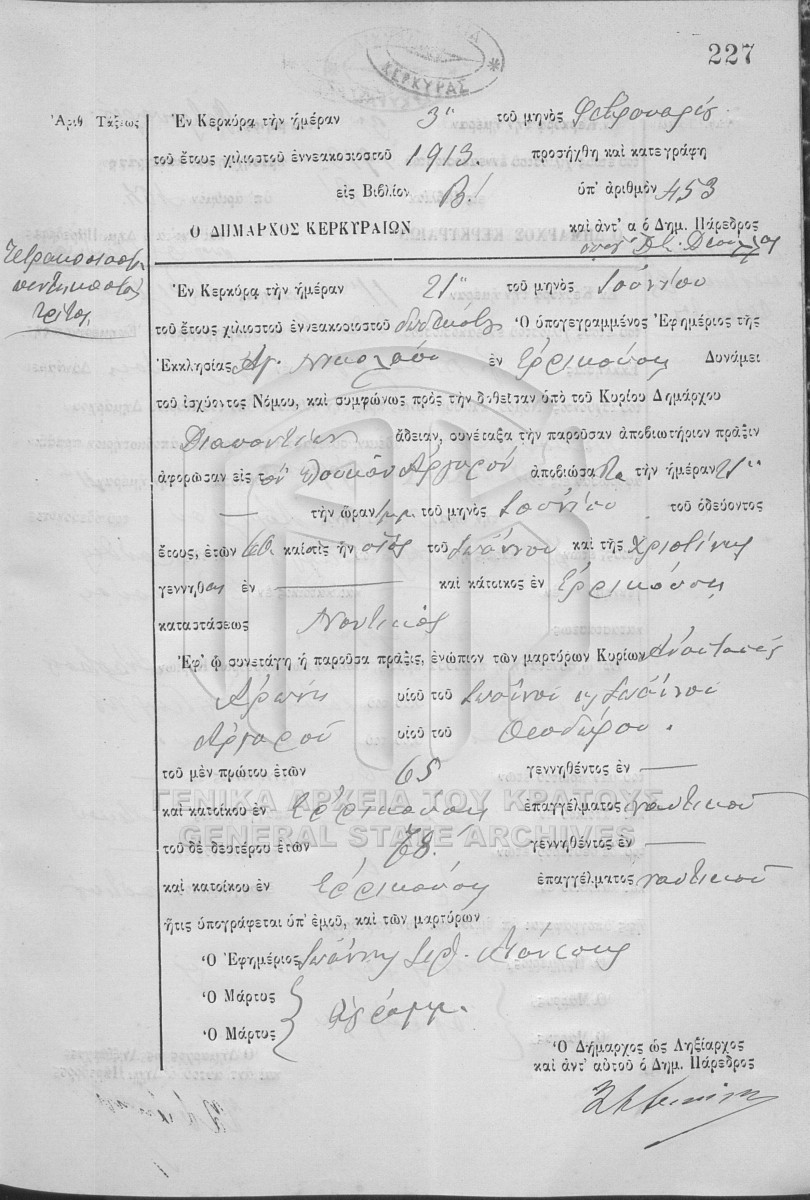 227
ΚΕΡΚΥΡΑΣ
Ἀριθ Τάξεως
Ἐν Κερκύρᾳ τὴν ἡμέραν 3ῃ τοῦ μηνὸς Φεβρουαρίου
τοῦ ἔτους χιλιοστοῦ ἐννεακοσιοστοῦ 1913. προσήχθη καὶ κατεγράφη
εἰς Βιβλίον Β! ὑπ' ἀριθμὸν 453
Ο ΔΗΜΑΡΧΟΣ ΚΕΡΚΥΡΑΙΩΝ καὶ ἀντ' α ὁ Δημ. Πάρεδρος
Τετρακοσιοστὴ
πεντηκοστὴ
τρίτη
Ἐν Κερκύρᾳ τὴν ἡμέραν 21ῃ τοῦ μηνὸς Ἰουνίου
τοῦ ἔτους χιλιοστοῦ ἐννεακοσιοστοῦ δωδεκάτου Ὁ ὑπογεγραμμένος Ἐφημέριος τῆς
Ἐκκλησίας Ἁγ. Νικολάου ἐν Ἐρρικούσῃ Δυνάμει
τοῦ ἰσχύοντος Νόμου, καὶ συμφώνως πρὸς τὴν δοθεῖσαν ὑπὸ τοῦ Κυρίου Δημάρχου
Διαποντίων ἄδειαν, συνέταξα τὴν παροῦσαν ἀποβιωτήριον πρᾶξιν
ἀφορῶσαν εἰς τὸν Λουκᾶν Ἀργυρὸν ἀποβιώσαντα τὴν ἡμέραν 21ῃ
— τὴν ὥραν μ.μ. τοῦ μηνὸς Ἰουνίου τοῦ ὁδεύοντος
ἔτους, ἐτῶν καίστις ἦν υἱὸς τοῦ Ἰωάννου καὶ τῆς Χριστίνης
γεννηθεὶς ἐν — καὶ κάτοικος ἐν Ἐρρικούσῃ
καταστάσεως Ναυτικὸς
Ἐφ' ᾧ συνετάγη ἡ παροῦσα πρᾶξις, ἐνώπιον τῶν μαρτύρων Κυρίων Ἀναστασίου
υἱοῦ τοῦ Ἰωάννου κ Ἰωάννου
Ἀργυροῦ υἱοῦ τοῦ Θεοδώρου.
τοῦ μὲν πρώτου ἐτῶν 65 γεννηθέντος ἐν —
καὶ κατοίκου ἐν Ἐρρικούσῃ ἐπαγγέλματος ναυτικοῦ
τοῦ δὲ δευτέρου ἐτῶν 78 γεννηθέντος ἐν —
καὶ κατοίκου ἐν Ἐρρικούσῃ ἐπαγγέλματος ναυτικοῦ
ἥτις ὑπογράφεται ὑπ' ἐμοῦ, καὶ τῶν μαρτύρων
Ὁ Ἐφημέριος Ἰωάννης
Ὁ Μάρτυς
Ὁ Μάρτυς ἀγράμμ.
Ὁ Δήμαρχος ὡς Ληξίαρχος
καὶ ἀντ' αὐτοῦ ὁ Δημ. Πάρεδρος
ΓΕΝΙΚΑ ΑΡΧΕΙΑ ΤΟΥ ΚΡΑΤΟΥΣ
GENERAL STATE ARCHIVES